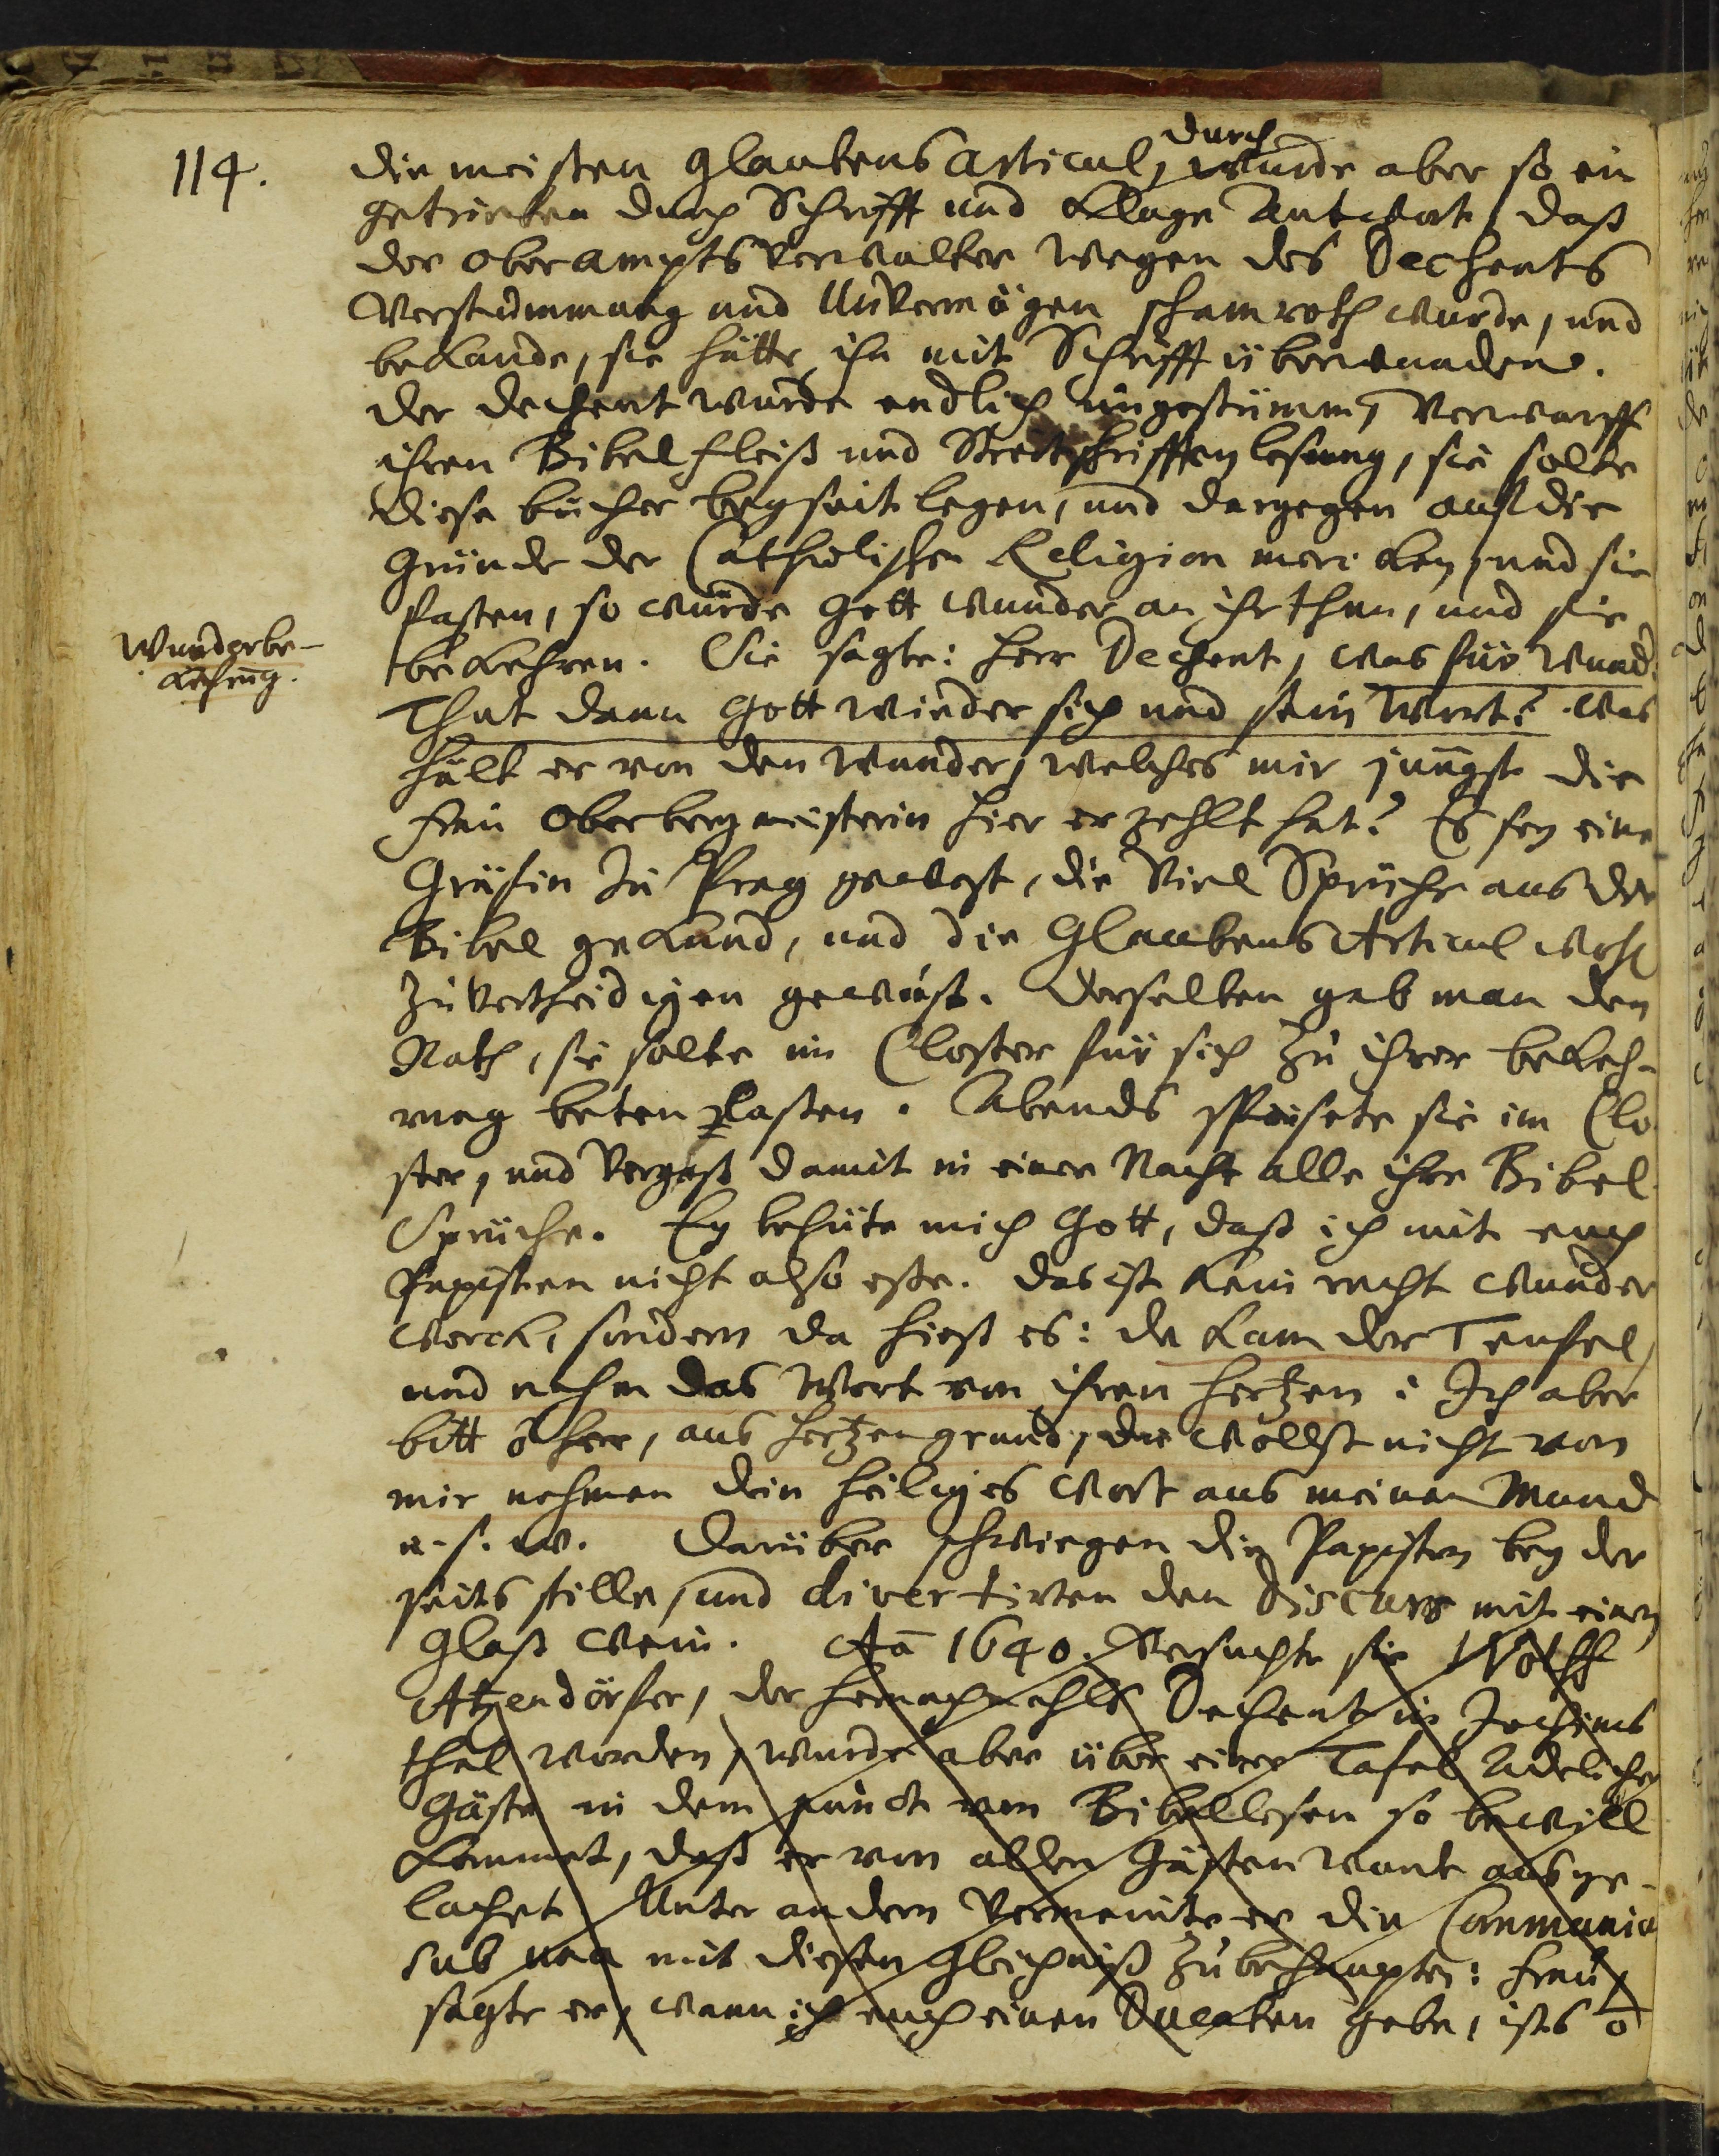 114.
die meisten Glaubens Articul, durch wurde aber so ein
getrieben durch Schrifft und kluge Antwort, daß
der oberampts Verwalter wegen des Dechents
Verstummung und Unvermögen schamroth wurde, und
bekande, sie hätte ihn mit Schrifft überwunden.
der Dechent wurde endlich ungestümm, Verwarff
ihren Bibel fleiß und Streitschrifften lesung, sie solte
diese bücher beyseit legen, und dargegen auf die
Gründe der Catholischen Religion mercken, und sie
fasten, so würde Gott wunder an ihr thun, und sie
Wunderbe-
kehrung.
bekehren. Sie sagte: Herr Dechent, was für Wund.
That dann Gott wieder sich und sein Wort? was
hält er von den Wunder, welches mir jüngst die
Frau Oberbergmeisterin hier erzehlt hat? Es sey eine
Gräfin zu Prag gewest, die Viel Sprüche aus der
Bibel gekund, und die Glaubens Articul wohl
zu vertheidigen gewust. Derselben gab man den
Rath, sie solte im Closter für sich zu ihrer bekeh-
rung beten fasten. Abends speisete sie im Clo
ster, und Vergaß damit in einer Nacht alle ihre Bibel
Sprüche. Ey behüte mich Gott, daß ich mit euch
Papisten nicht also esse. das ist kein recht Wunder
werck, sondern da hiest es: da kam der Teufel,
und nahm das Wort von ihren Hertzen: Ich aber
bitt ô Herr, aus Hertzen grund, du wollst nicht von
mir nehmen dein heiliges Wort aus meinen Mund
u. s. w. Darüber schwiegen die Papisten beyder
seits stille, und divertirten den Discurs mit einen
Glaß Wein. Aō 1640. Versuchte sie Wolff
Atzendörfer, der hernachmahls Dechent in Jochims
thal worden, wurde aber über einer Tafel Adelicher
Gäste in dem punct vom Bibellesen so bewill
kommet, daß er von allen Gästen ward ausge-
lachet. Unter andern Vermeinte er die Communio
sub una mit diesen Gleichniß zu behaupten: Frau,
sagte er, wann ich euch einen Ducaten gebe, ists ō